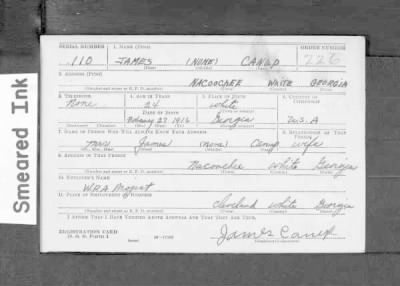 Smeared Ink
SERIAL NUMBER 1. NAME (Print) ORDER NUMBER
110 JAMES (NONE) CANUP 226
(First) (Middle) (Last)
2. ADDRESS (Print)
NACOOCHEE WHITE GEORGIA
(Number and street or R. F. D. number) (Town) (County) (State)
3. TELEPHONE 4. AGE IN YEARS 5. PLACE OF BIRTH 6. COUNTRY OF CITIZENSHIP
None 24 White
DATE OF BIRTH
February 27 1916 Georgia U.S.A
7. NAME OF PERSON WHO WILL ALWAYS KNOW YOUR ADDRESS 8. RELATIONSHIP OF THAT PERSON
Mrs James (none) Canup wife
9. ADDRESS OF THAT PERSON
Nacoochee White Georgia
(Number and street or R. F. D. number) (Town) (County) (State)
10. EMPLOYER'S NAME
W.P.A Project
11. PLACE OF EMPLOYMENT OR BUSINESS
Cleveland White Georgia
(Number and street or R. F. D. number) (Town) (County) (State)
I AFFIRM THAT I HAVE VERIFIED ABOVE ANSWERS AND THAT THEY ARE TRUE.
REGISTRATION CARD
D. S. S. Form 1
James Canup